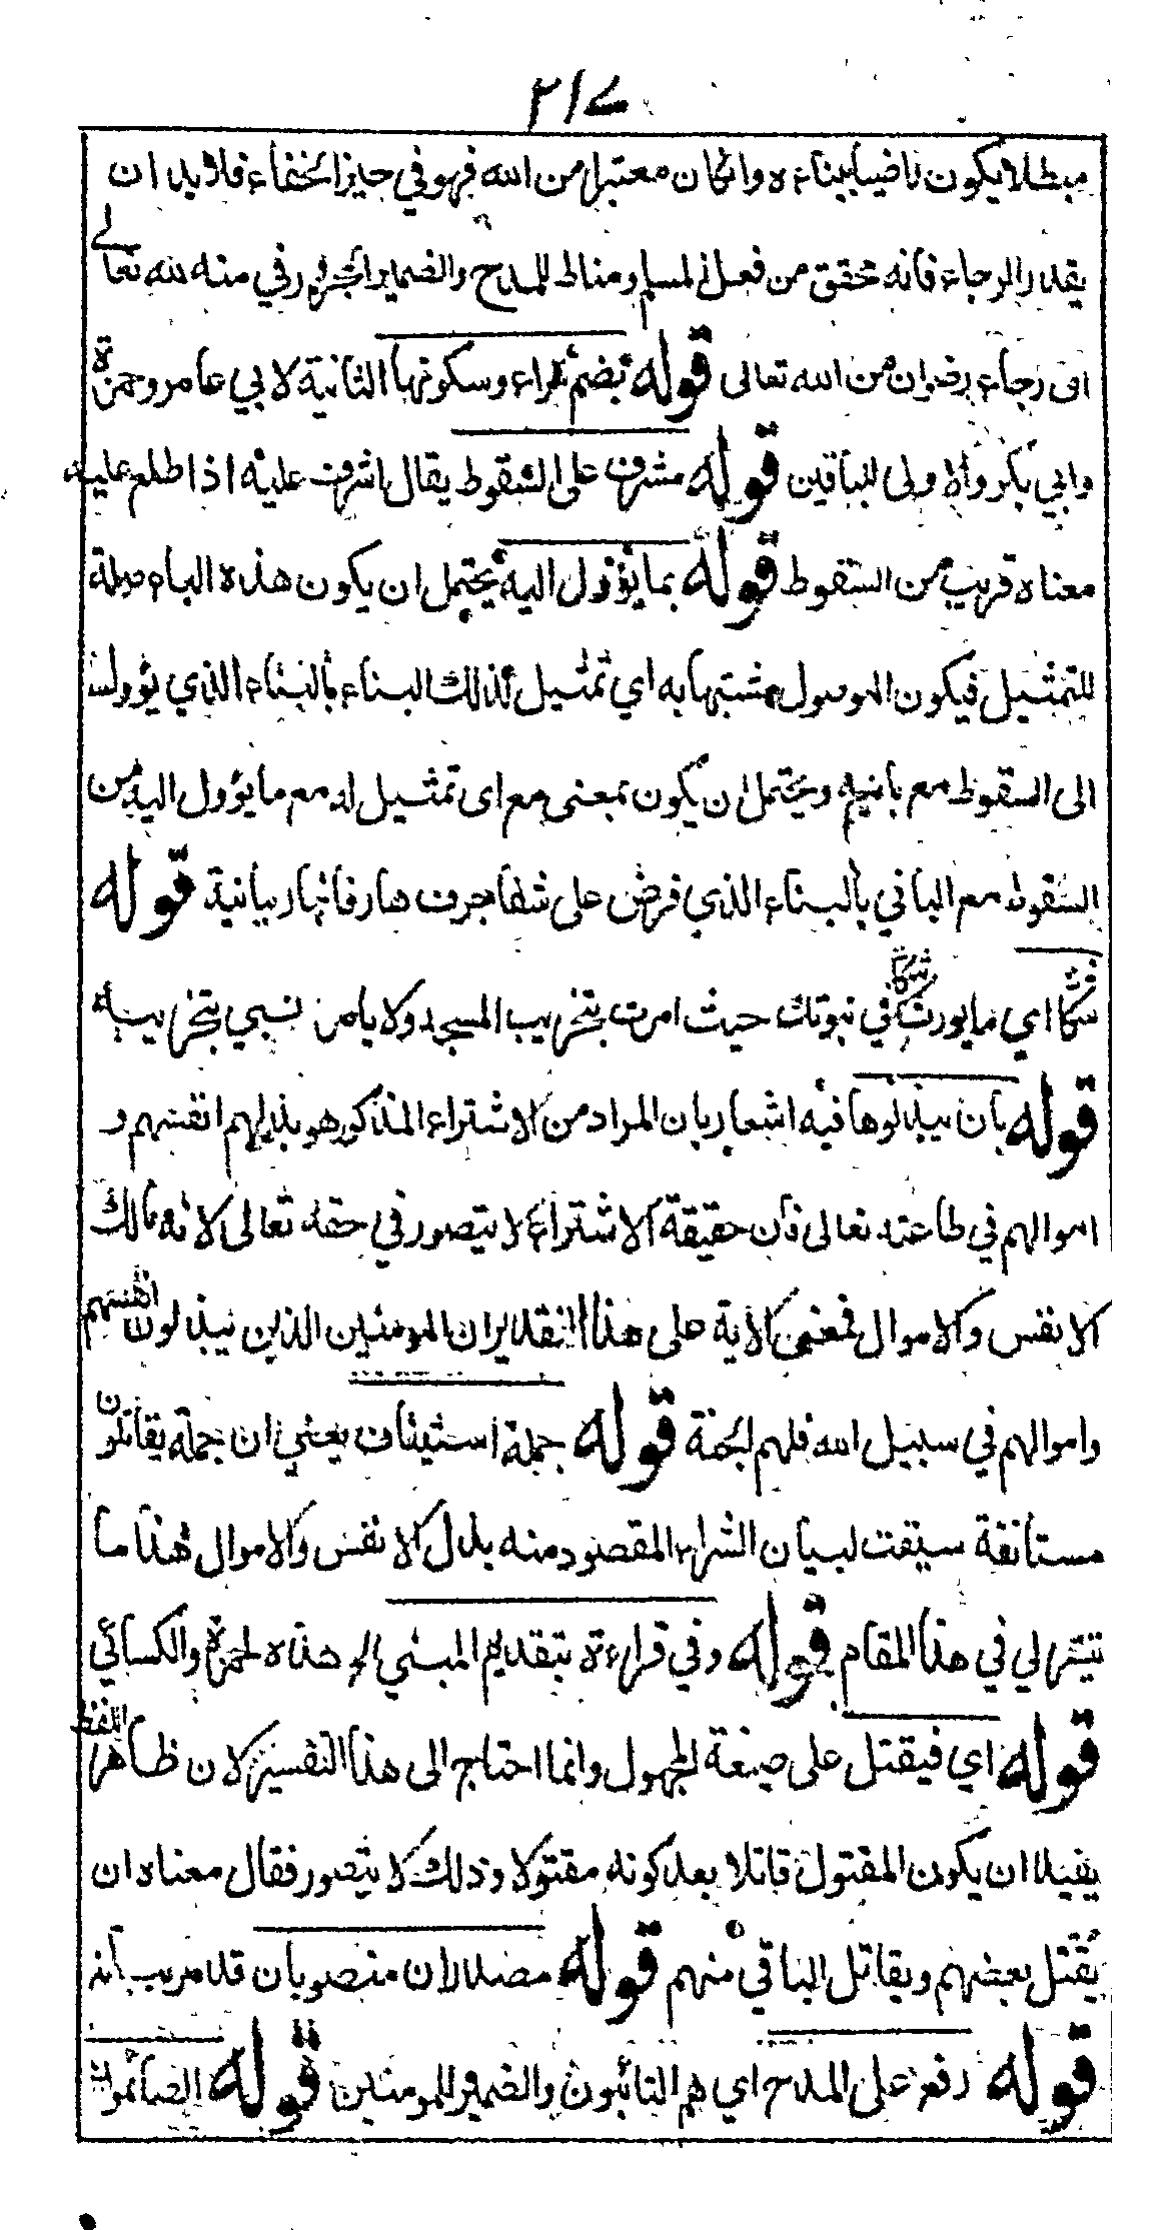 ٢١٧
مبطلا يكون ناضيا ببناءه وان كان معتبرا من الله فهو في حيز الخفاء فلا بد ان
يقدر الرجاء فانه محقق من فعل المسلم ومناط للمدح والضمير المجرور في منه لله تعالى
اى رجاء رضوان من الله تعالى قوله بضم الراء وسكونها الثانية لابي عامر وحمزة
وابي بكر والاولى للباقين قوله مشرف على السقوط يقال اشرف عليه اذا طلع عليه
معناه قريب من السقوط قوله بما يؤول اليه يحتمل ان يكون هذه الباء صلة
للتمثيل فيكون الموصول مشبها به اي تمثيل لذلك البناء بالبناء الذي يؤول
الى السقوط مع بانيه ويحتمل ان يكون بمعنى مع اى تمثيل له مع ما يؤول اليه من
السقوط مع الباني بالبناء الذي فرض على شفا جرف هار فانهار بيانية قوله
شكا اي ما يورث شكا في نبوتك حيث امرت بتخريب المسجد ولا يامر نبي بتخريبه
قوله بان يبذلوها فيه اشعار بان المراد من الاشتراء المذكور هو بذلهم انفسهم و
اموالهم في طاعته تعالى فان حقيقة الاشتراء لا يتصور في حقه تعالى لانه مالك
الانفس والاموال فمعنى الاية على هذا التقدير ان المومنين الذين يبذلون انفسهم
واموالهم في سبيل الله فلهم الجنة قوله جملة استيناف يعني ان جملة يقاتلون
مستانفة سيقت لبيان الشراء المقصود منه بدل الانفس والاموال هذا ما
تيسر لي في هذا المقام قوله وفي قراءة بتقديم المبني الى هذه لحمزة والكسائي
قوله اي فيقتل على صيغة المجهول وانما احتاج الى هذا التفسير لان ظاهر اللفظ
يفيد ان يكون المقتول قاتلا بعد كونه مقتولا وذلك لا يتصور فقال معناه ان
يقتل بعضهم ويقاتل الباقي منهم قوله مصدران منصوبان قد مر بيانه
قوله رفع على المدح اي هم التائبون والضمير للمومنين قوله الصائمون